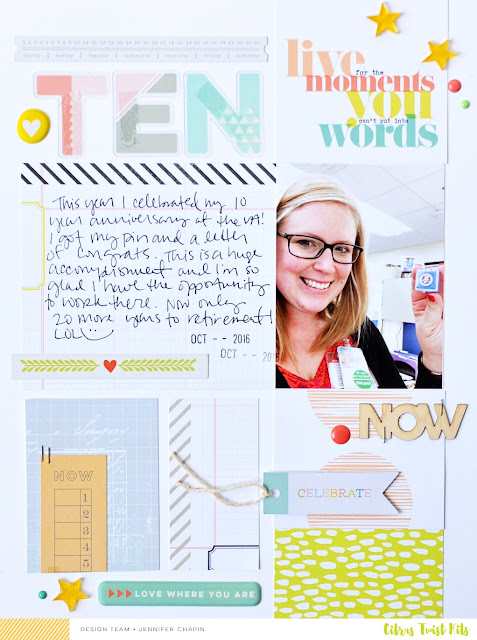 TEN
live
for the
moments
you
can't put into
words
This year I celebrated my 10
year anniversary at the VA!
I got my pin and a letter
of congrats. This is a huge
accomplishment and I'm so
glad I have the opportunity
to work there. Now only
20 more years to retirement!
LOL!
OCT -- 2016
OCT -- 2016
NOW
NOW
1
2
3
4
5
CELEBRATE
LOVE WHERE YOU ARE
DESIGN TEAM • JENNIFER CHAPIN
Citrus Twist Kits